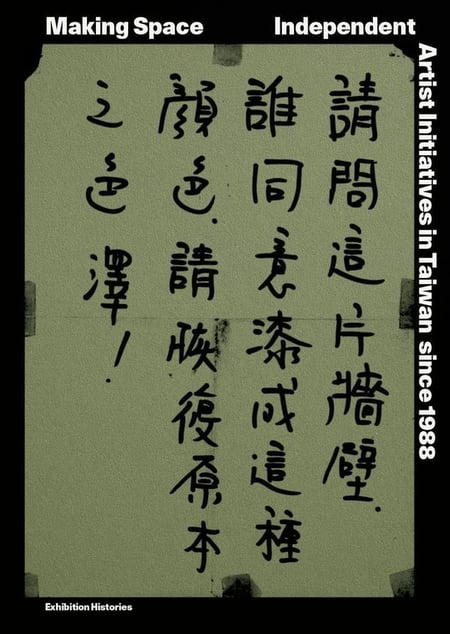 Making Space
Independent
Artist Initiatives in Taiwan since 1988
請問這片牆壁.
誰同意漆成這種
顏色.請恢復原本
之色澤!
Exhibition Histories